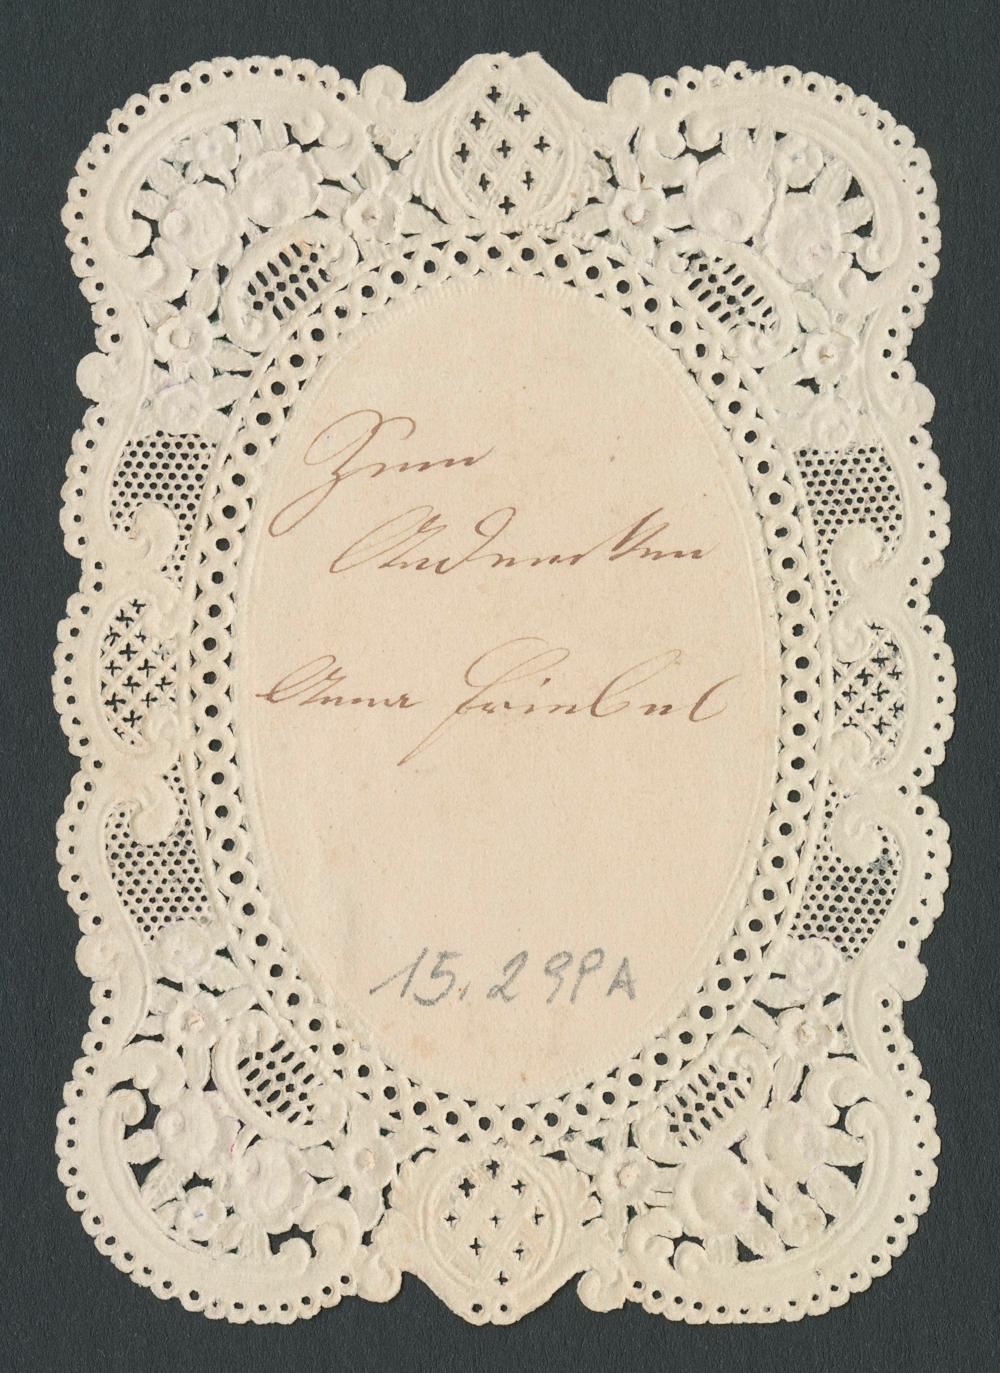 Zum
Andencken
Anna Friebel
15.29PA